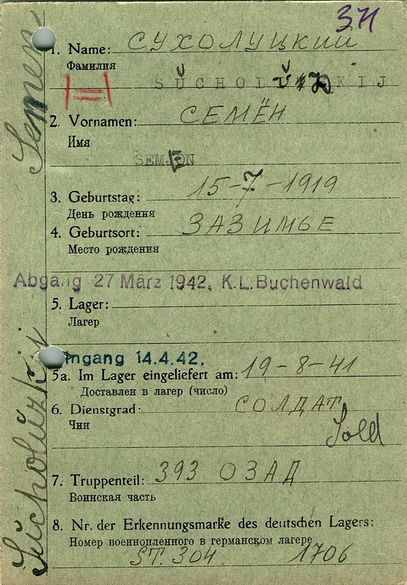 371
1. Name: СУХОЛУЦКИЙ
Фамилия
SUCHOLU KIJ
2. Vornamen: СЕМЁН
Имя
SEMJON
3. Geburtstag: 15-7-1919
День рождения
4. Geburtsort: ЗАЗИМЬЕ
Место рождения
Abgang 27 März 1942, K.L. Buchenwald
5. Lager:
Лагерь
Eingang 14.4.42.
5a. Im Lager eingeliefert am: 19-8-41
Доставлен в лагерь (число)
6. Dienstgrad: СОЛДАТ
Чин
Sold
7. Truppenteil: 393 ОЗАД
Воинская часть
8. Nr. der Erkennungsmarke des deutschen Lagers:
Номер военнопленного в германском лагере
ST. 304 1706
Sucholuzkij Semen